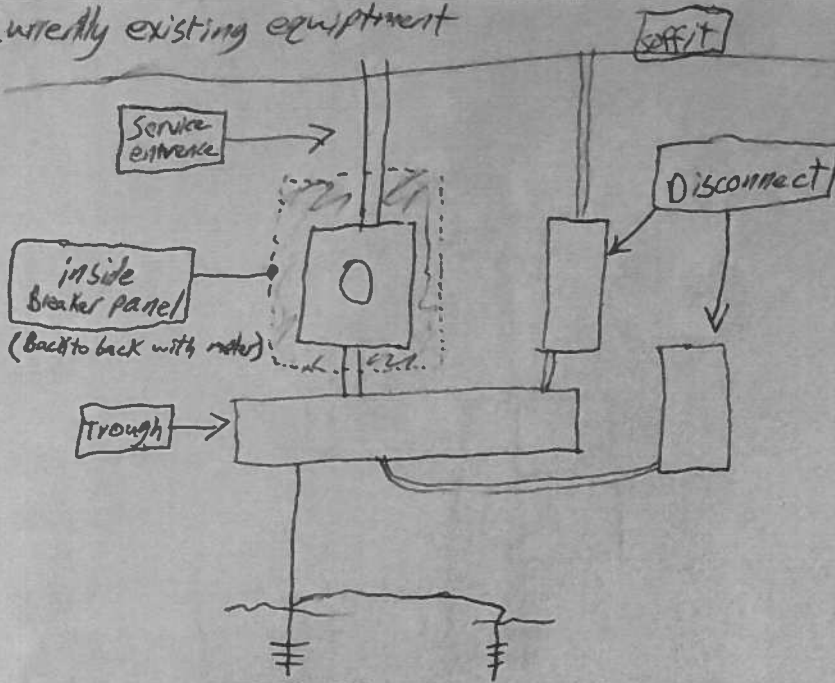 Currently existing equiptment
soffit
Service
entrence
Disconnect
inside
Breaker panel
(Back to back with meter)
Trough